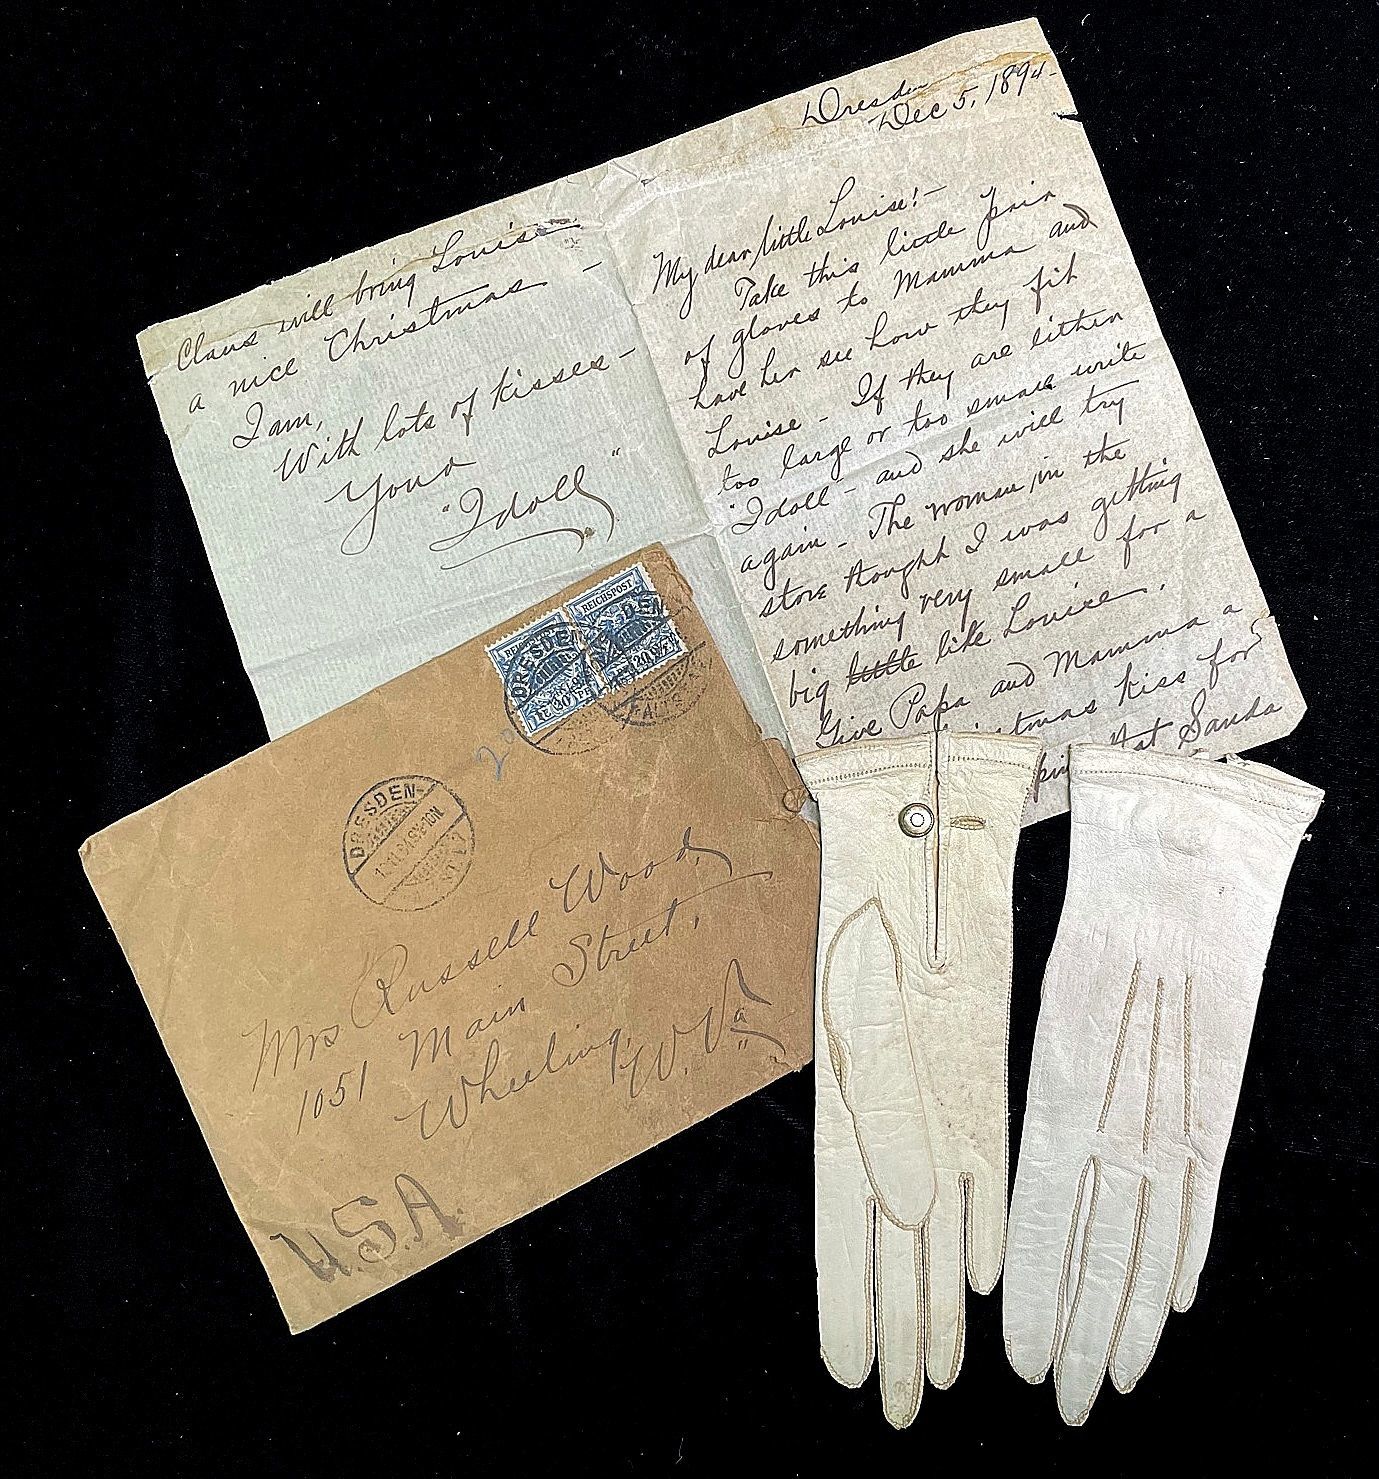 Dresden
Dec 5, 1894-
My dear little Louise!-
Take this little pair
of gloves to Mamma and
have her see how they fit
Louise - If they are either
too large or too small write
"Idoll - and she will try
again - The woman in the
store thought I was getting
something very small for a
big little like Louise.
Give Papa and Mamma a
kiss for
Santa
Claus will bring Louise
a nice Christmas -
I am,
With lots of kisses -
Your
"Idoll"
REICHSPOST
20 PF
DRESDEN
20
DRESDEN-
Mrs Russell Wood,
1051 Main Street,
Wheeling,
W. Va
U.S.A.